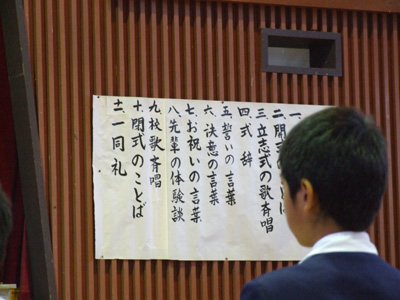 一、
二、開式
ば
三、立志式の歌斉唱
四、式辞
五、誓いの言葉
六、決意の言葉
七、お祝いの言葉
八、先輩の体験談
九、校歌斉唱
十、閉式のことば
十一、一同礼